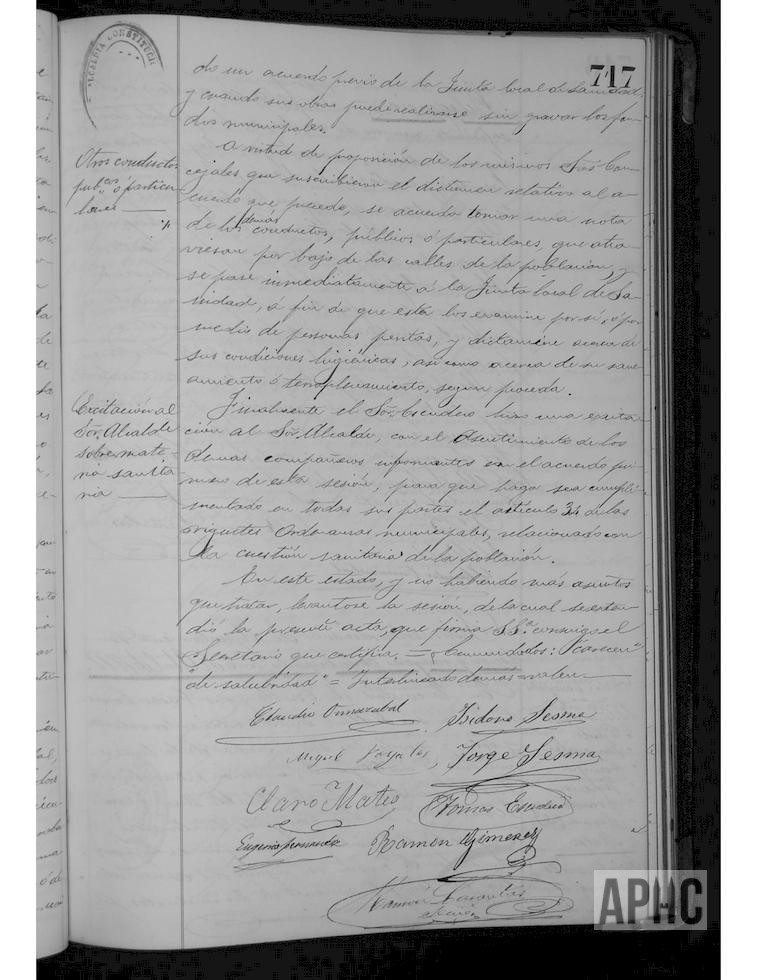 ALCALDIA CONSTITUCI
717
do un acuerdo previo de la Junta local de Sanidad,
y cuando sus obras puede realizarse sin gravar los fon-
dos municipales.
Otros conductos
pub.cos ó particu
lares
A virtud de proposición de los mismos Sres. Con-
cejales que suscribieron el dictamen relativo al a-
cuerdo que precede, se acuerda tomar una nota
de los demás conductos, públicos ó particulares, que atra-
viesan por bajo de las calles de la población, y
se pase inmediatamente á la Junta local de Sa-
nidad, á fin de que esta los examine por sí, ó por
medio de personas peritas, y dictamine acerca de
sus condiciones higiénicas, así como acerca de su sane-
amiento ó terraplenamiento, según proceda.
Excitación al
Sor. Alcalde
sobre mate-
ria sanita
ria
Finalmente el Sor. Escudero hizo una excita-
ción al Sor. Alcalde, con el asentimiento de los
demas compañeros informantes en el acuerdo pri-
mero de esta sesión, para que haga sea cumpli-
mentado en todas sus partes el artículo 34 de las
vigentes Ordenanzas municipales, relacionado con
la cuestión sanitaria de la población.
En este estado, y no habiendo más asuntos
que tratar, levantose la sesión, de la cual se exten-
dió la presente acta, que firma S.S.ª conmigo el
Secretario que certifica. = Enmendados: "carecen"
"de salubridad" = Interlineado demas = valen
Claudio Ormazabal Isidoro Sesma
Miguel Jorge Sesma
Claro Mateo Tomas Escudero
Eugenio Fernandez Ramon Gimenez
Ramón
APHC